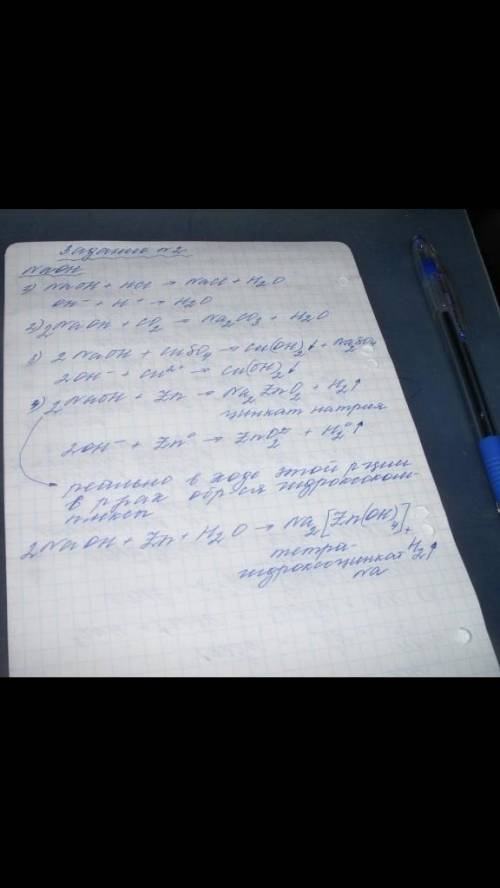 Задание №2
NaOH
1) NaOH + HCl → NaCl + H2O
OH⁻ + H⁺ → H2O
2) 2NaOH + CO2 → Na2CO3 + H2O
3) 2NaOH + CuSO4 → Cu(OH)2↓ + Na2SO4
2OH⁻ + Cu²⁺ → Cu(OH)2↓
4) 2NaOH + Zn → Na2ZnO2 + H2↑
цинкат натрия
2OH⁻ + Zn⁰ → ZnO2²⁻ + H2⁰↑
реально в ходе этой р-ции
в р-рах обр-ся гидроксоком-
плекс
2NaOH + Zn + H2O → Na2[Zn(OH)4] +
H2↑
тетра-
гидроксоцинкат
Na